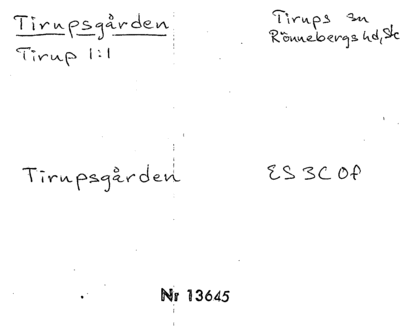 Tirupsgården
Tirup 1:1
Tirups sn
Rönnebergs hd, Sk
Tirupsgården
ES 3C 0f
Nr 13645